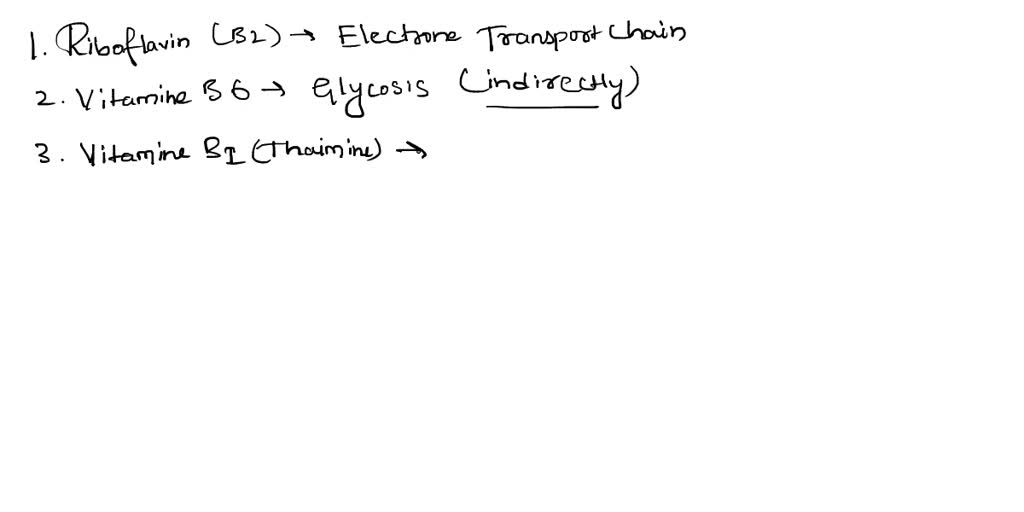 1. Riboflavin (B2) → Electrone Transport Chain
2. Vitamine B6 → Glycosis (indirectly)
3. Vitamine B1 (Thaimine) →